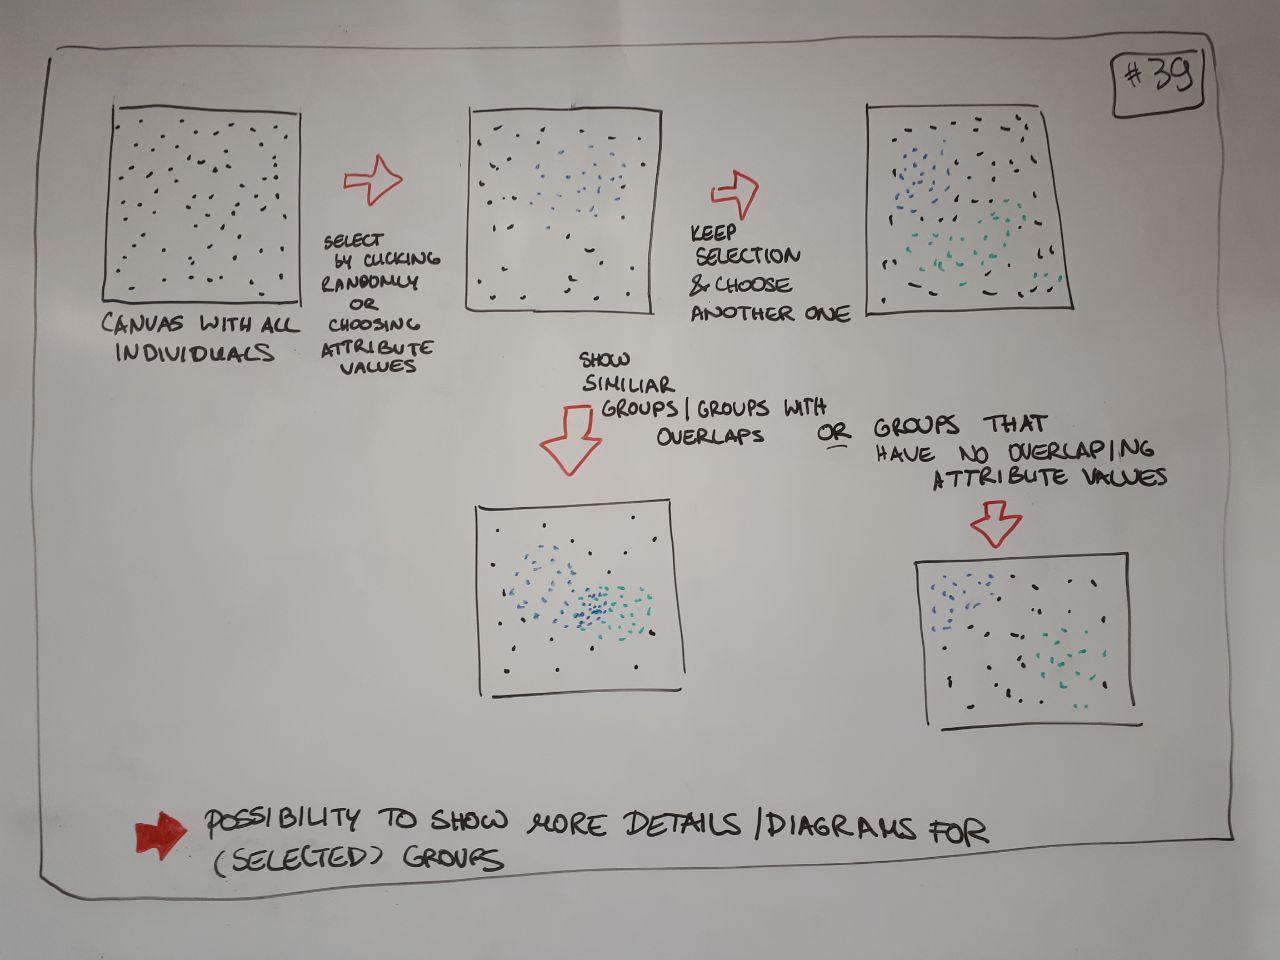 #39
CANVAS WITH ALL
INDIVIDUALS
SELECT
BY CLICKING
RANDOMLY
OR
CHOOSING
ATTRIBUTE
VALUES
KEEP
SELECTION
& CHOOSE
ANOTHER ONE
SHOW
SIMILIAR
GROUPS/GROUPS WITH
OVERLAPS OR GROUPS THAT
HAVE NO OVERLAPING
ATTRIBUTE VALUES
POSSIBILITY TO SHOW MORE DETAILS/DIAGRAMS FOR
(SELECTED) GROUPS